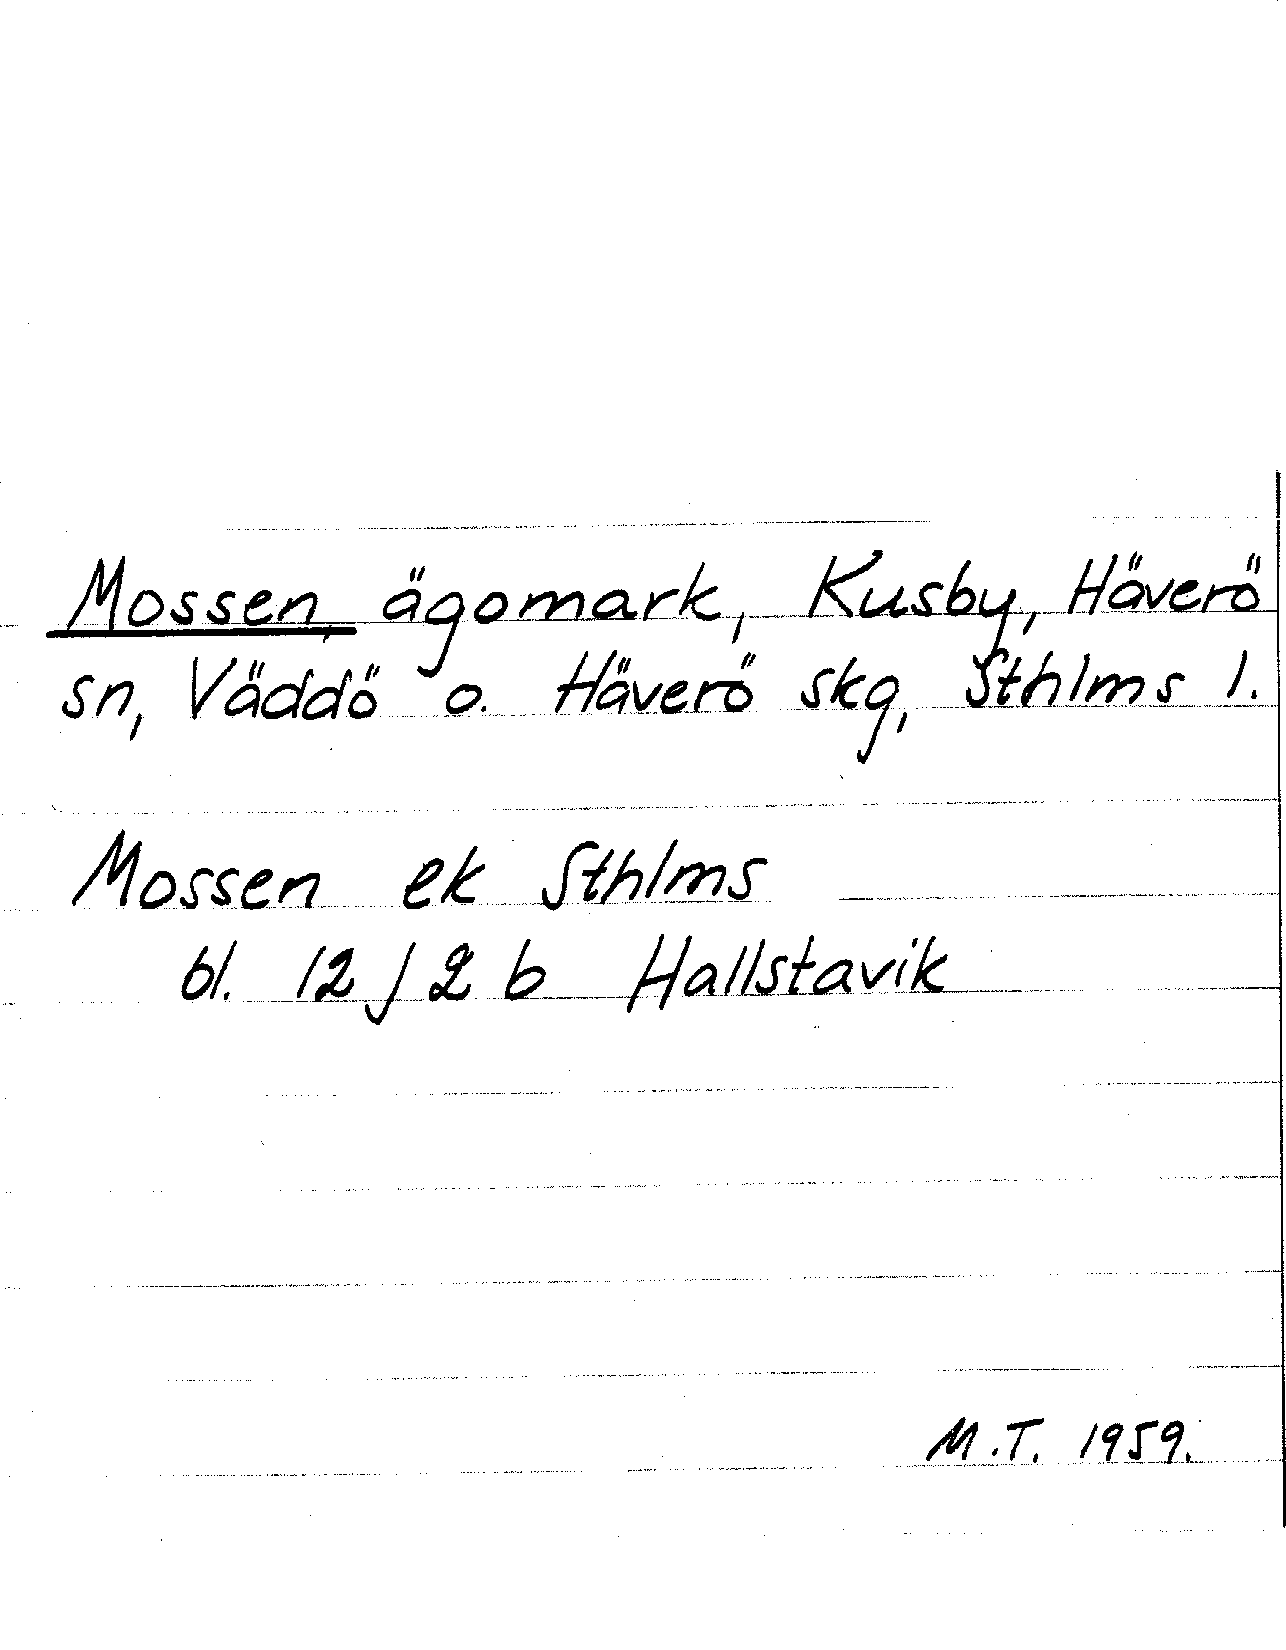 Mossen, ägomark, Kusby, Häverö
sn, Väddö o. Häverö skg, Sthlms l.
Mossen ek Sthlms
bl. 12 J 2 b Hallstavik
M.T. 1959.